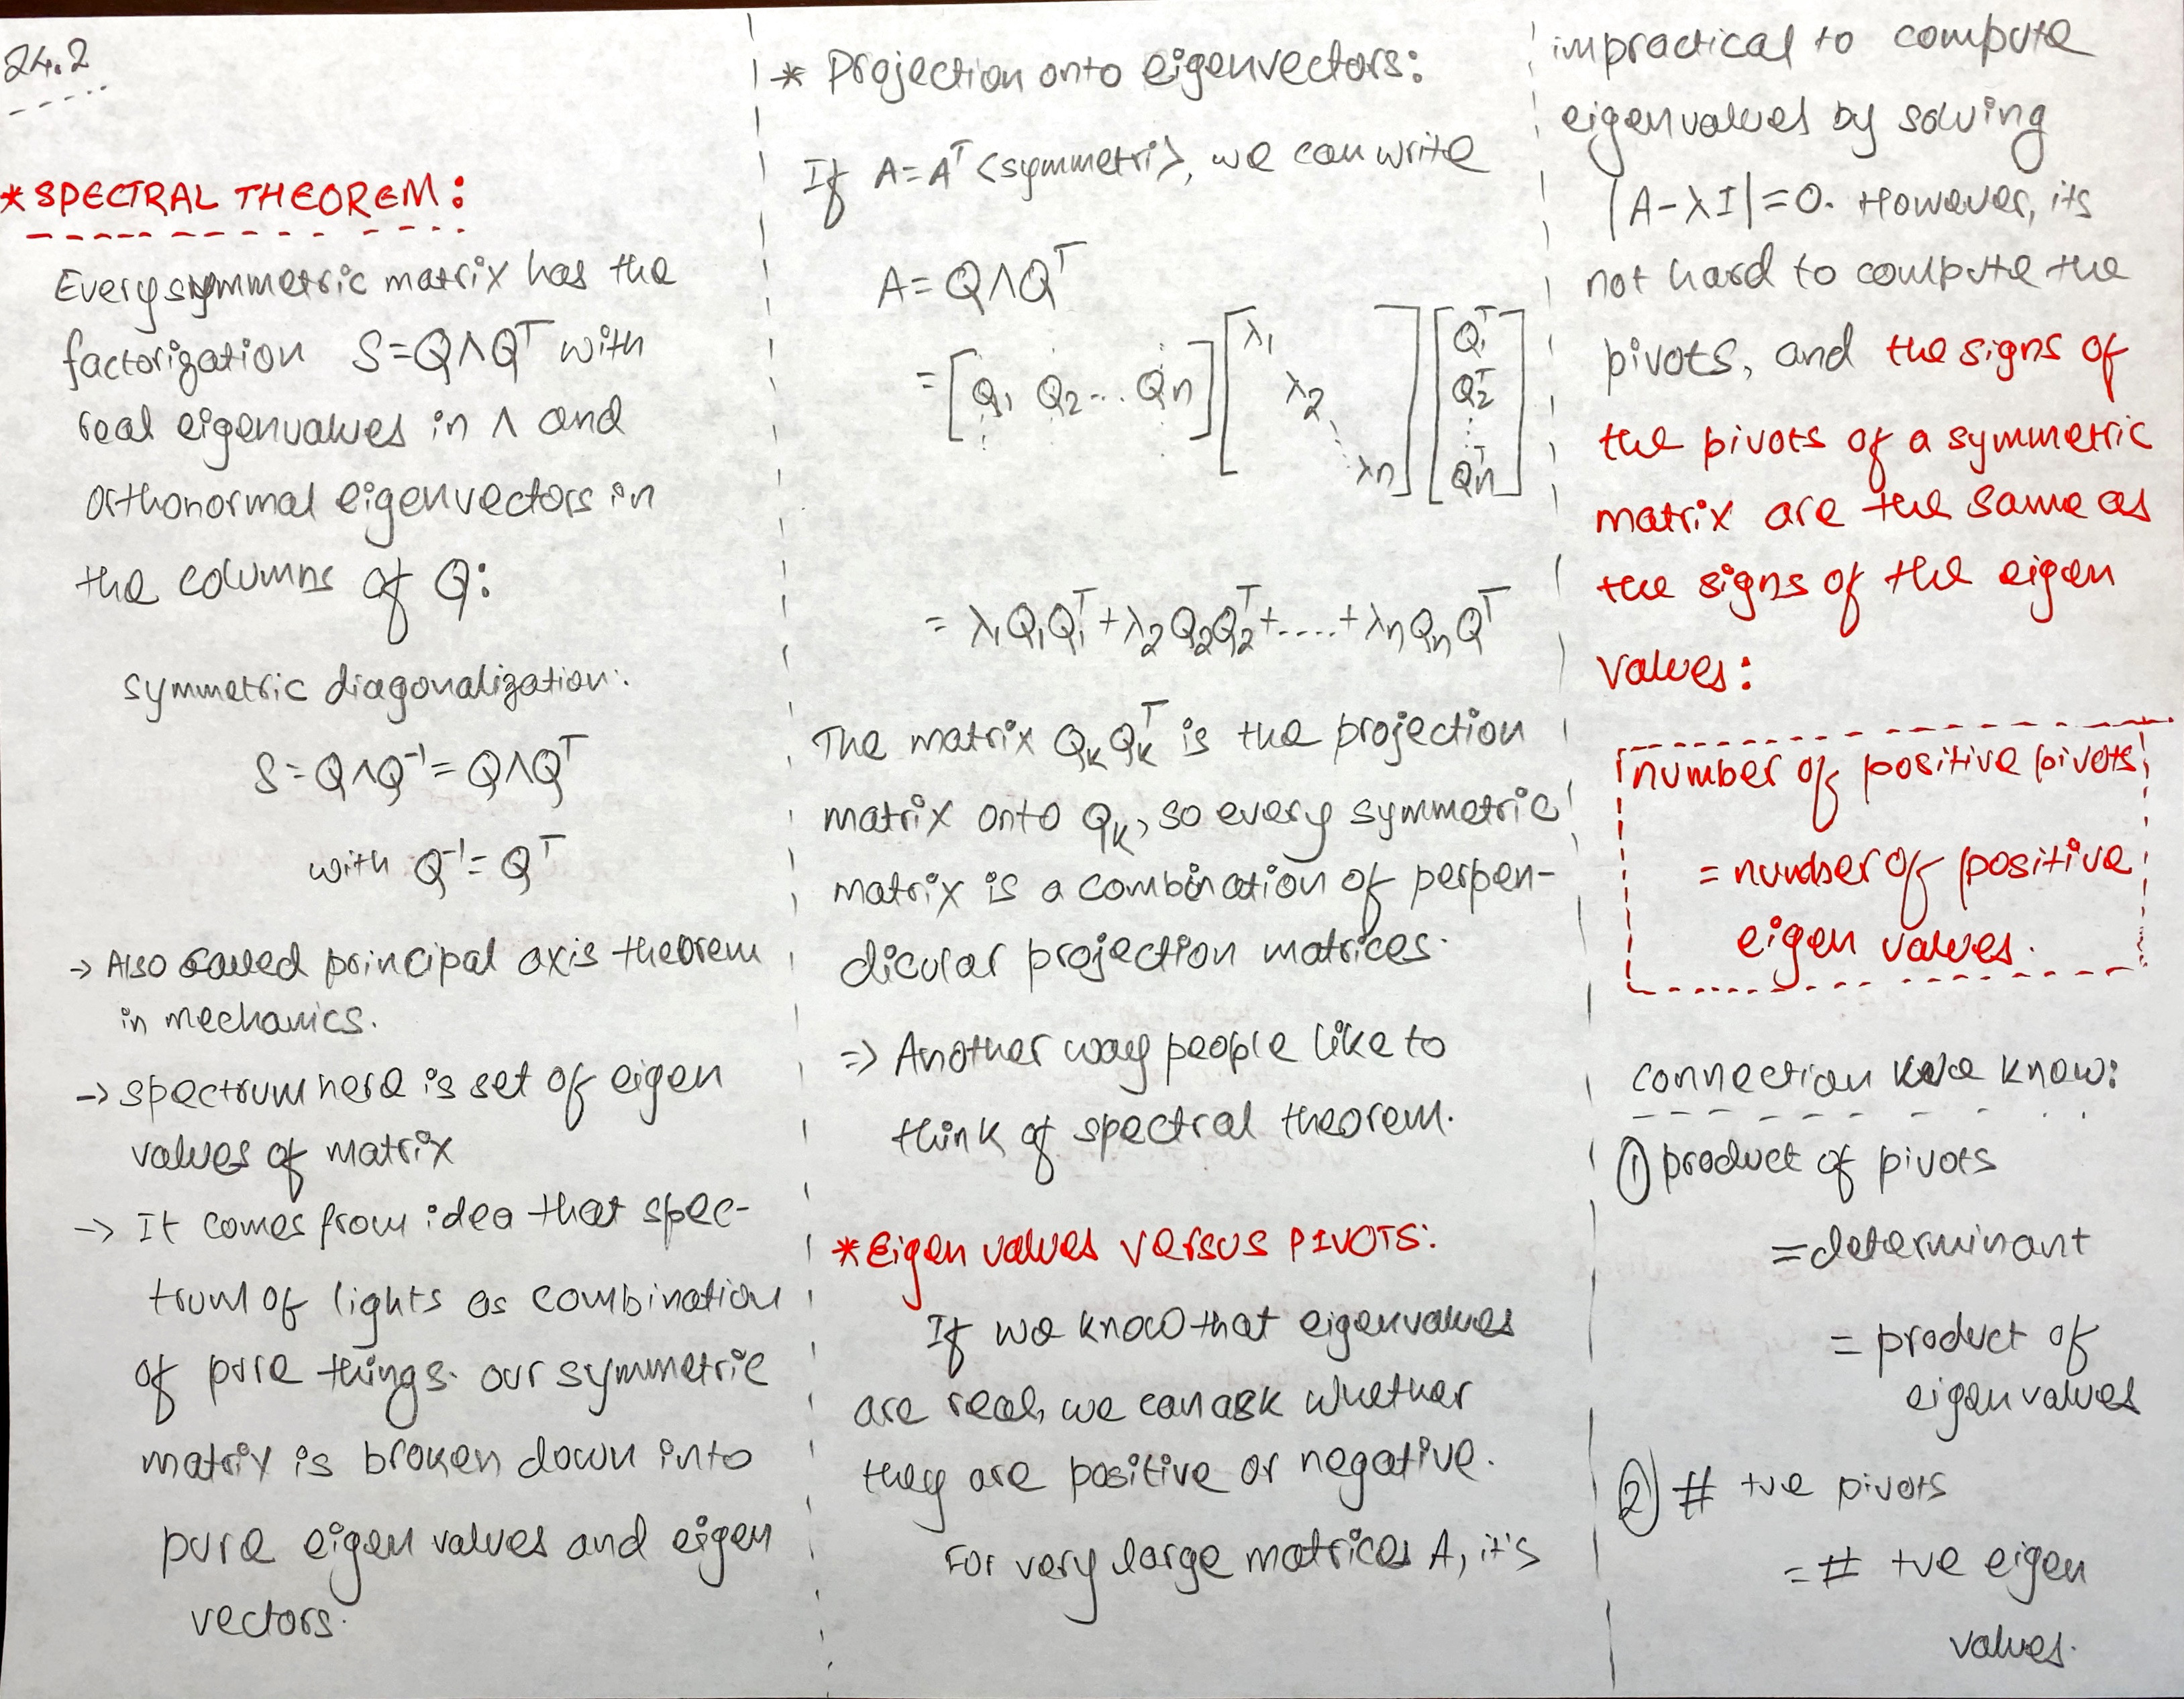 24.2
* SPECTRAL THEOREM:
Every symmetric matrix has the
factorization S=QΛQᵀ with
real eigenvalues in Λ and
orthonormal eigenvectors in
the columns of Q:
symmetric diagonalization:
S=QΛQ⁻¹=QΛQᵀ
with Q⁻¹=Qᵀ
→ Also called principal axis theorem
in mechanics.
→ spectrum here is set of eigen
values of matrix
→ It comes from idea that spec-
trum of lights as combination
of pure things. our symmetric
matrix is broken down into
pure eigen values and eigen
vectors.
* Projection onto eigenvectors:
If A=Aᵀ <symmetri>, we can write
A=QΛQᵀ
= [Q₁ Q₂ ... Qn] [λ₁ λ₂ ... λn] [Q₁ᵀ Q₂ᵀ ⋮ Qnᵀ]
= λ₁Q₁Q₁ᵀ+λ₂Q₂Q₂ᵀ+....+λnQnQᵀ
The matrix QₖQₖᵀ is the projection
matrix onto Qₖ, so every symmetric
matrix is a combination of perpen-
dicular projection matrices.
⇒ Another way people like to
think of spectral theorem.
* Eigen values versus PIVOTS:
If we know that eigenvalues
are real, we can ask whether
they are positive or negative.
For very large matrices A, it's
impractical to compute
eigenvalues by solving
|A-λI|=0. However, its
not hard to compute the
pivots, and the signs of
the pivots of a symmetric
matrix are the same as
the signs of the eigen
values:
number of positive pivots
= number of positive
eigen values.
connection we know:
① product of pivots
=determinant
= product of
eigenvalues
② # +ve pivots
= # +ve eigen
values.